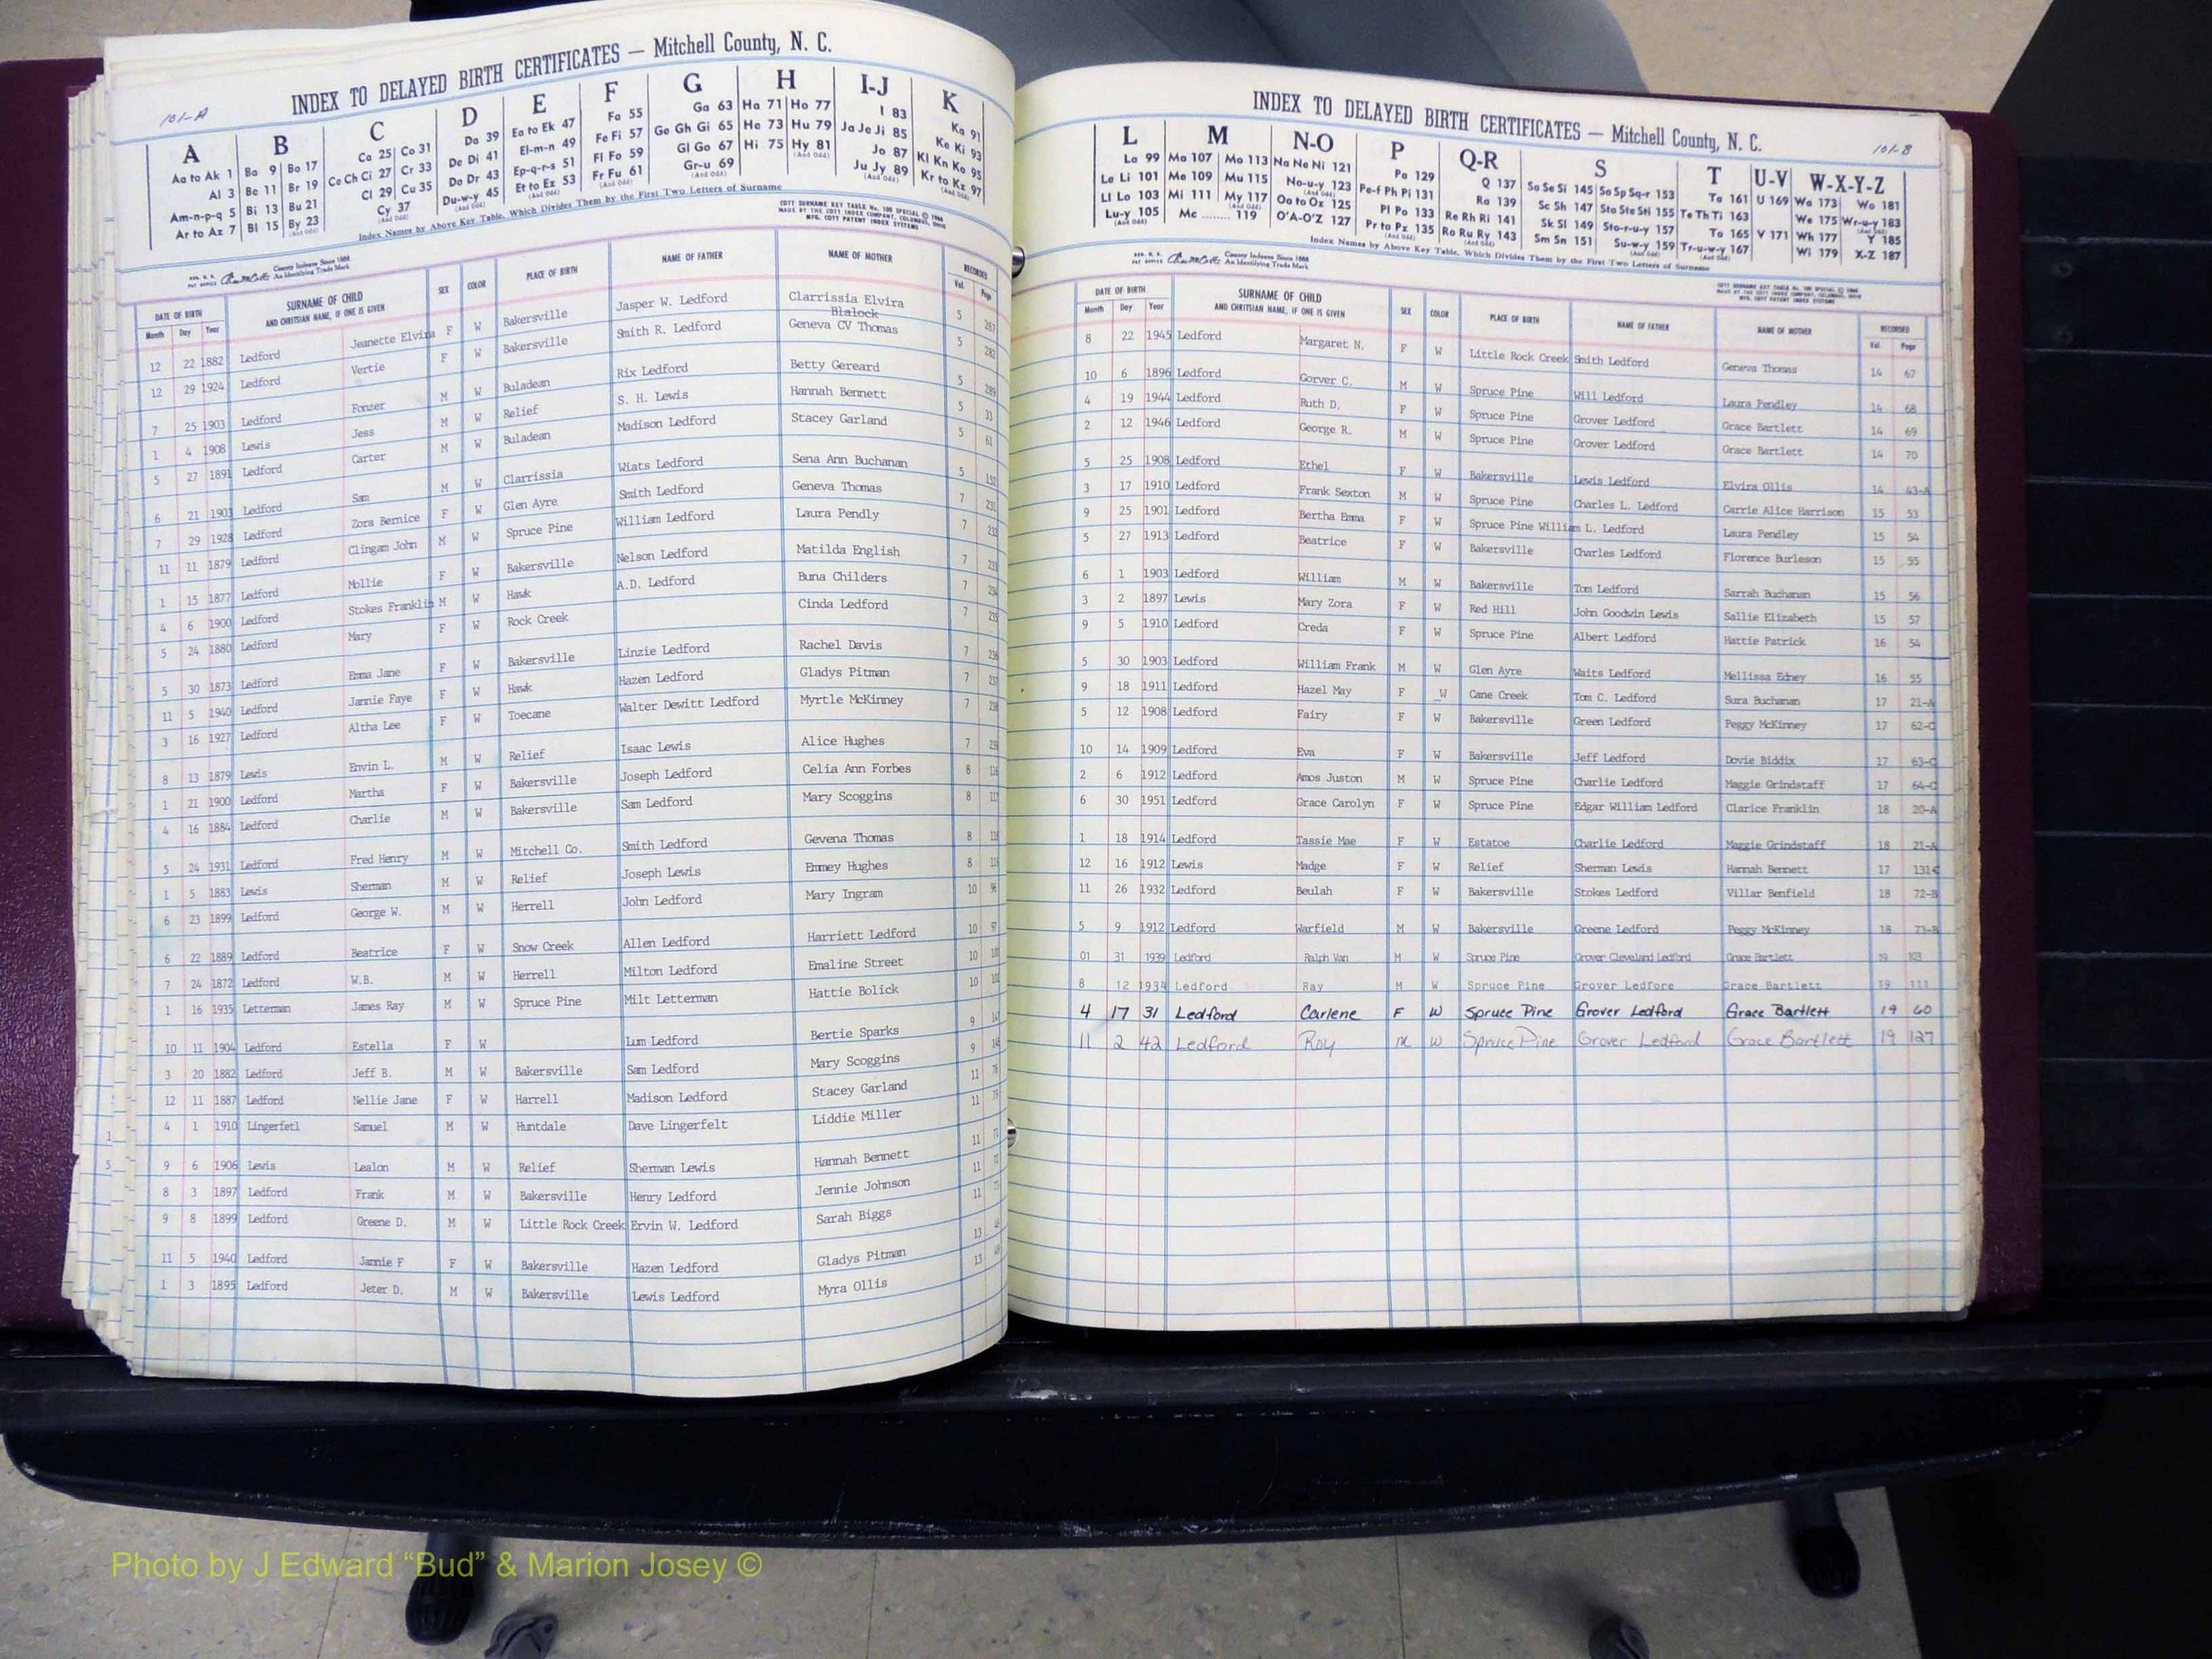 101-A
INDEX TO DELAYED BIRTH CERTIFICATES — Mitchell County, N. C.
A B C D E F G H I-J K
Aa to Ak 1 Ba 9 Bo 17 Ca 25 Co 31 Da 39 Ea to Ek 47 Fa 55 Ga 63 Ha 71 Ho 77 I 83 Ka 91
Al 3 Be 11 Br 19 Ce Ch Ci 27 Cr 33 De Di 41 El-m-n 49 Fe Fi 57 Ge Gh Gi 65 He 73 Hu 79 Ja Je Ji 85 Ke Ki 93
Am-n-p-q 5 Bi 13 Bu 21 Cl 29 Cu 35 Do Dr 43 Ep-q-r-s 51 Fl Fo 59 Gl Go 67 Hi 75 Hy 81 Jo 87 Kl Kn Ko 95
Ar to Az 7 Bl 15 By 23 Cy 37 Du-w-y 45 Et to Ez 53 Fr Fu 61 Gr-u 69 Ju Jy 89 Kr to Kz 97
Index Names by Above Key Table, Which Divides Them by the First Two Letters of Surname
COTT SURNAME KEY TABLE No. 100 SPECIAL © 1968
MADE BY THE COTT INDEX COMPANY, COLUMBUS, OHIO
MFG. COTT PATENT INDEX SYSTEMS
County Indexes Since 1888
An Identifying Trade Mark
DATE OF BIRTH SURNAME OF CHILD SEX COLOR PLACE OF BIRTH NAME OF FATHER NAME OF MOTHER RECORDED
Month Day Year AND CHRITSIAN NAME, IF ONE IS GIVEN Vol. Page
12 22 1882 Ledford Jeanette Elvira F W Bakersville Jasper W. Ledford Clarrissia Elvira Blalock 5 267
12 29 1924 Ledford Vertie F W Bakersville Smith R. Ledford Geneva CV Thomas 5 282
7 25 1903 Ledford Fonzer M W Buladean Rix Ledford Betty Gereard 5 289
1 4 1908 Lewis Jess M W Relief S. H. Lewis Hannah Bennett 5 33
5 27 1891 Ledford Carter M W Buladean Madison Ledford Stacey Garland 5 61
6 21 1903 Ledford Sam M W Clarrissia Wiats Ledford Sena Ann Buchanan 5 152
7 29 1928 Ledford Zora Bernice F W Glen Ayre Smith Ledford Geneva Thomas 7 231
11 11 1879 Ledford Clingam John M W Spruce Pine William Ledford Laura Pendly 7 232
1 15 1877 Ledford Mollie F W Bakersville Nelson Ledford Matilda English 7 233
4 6 1900 Ledford Stokes Franklin M W Hawk A.D. Ledford Buna Childers 7 234
5 24 1880 Ledford Mary F W Rock Creek Cinda Ledford 7 235
5 30 1873 Ledford Emma Jane F W Bakersville Linzie Ledford Rachel Davis 7 236
11 5 1940 Ledford Jannie Faye F W Hawk Hazen Ledford Gladys Pitman 7 237
3 16 1927 Ledford Altha Lee F W Toecane Walter Dewitt Ledford Myrtle McKinney 7 238
8 13 1879 Lewis Envin L. M W Relief Isaac Lewis Alice Hughes 7 239
1 21 1900 Ledford Martha F W Bakersville Joseph Ledford Celia Ann Forbes 8 116
4 16 1884 Ledford Charlie M W Bakersville Sam Ledford Mary Scoggins 8 117
5 24 1931 Ledford Fred Henry M W Mitchell Co. Smith Ledford Gevena Thomas 8 118
1 5 1883 Lewis Sherman M W Relief Joseph Lewis Emmey Hughes 8 119
6 23 1899 Ledford George W. M W Herrell John Ledford Mary Ingram 10 96
6 22 1889 Ledford Beatrice F W Snow Creek Allen Ledford Harriett Ledford 10 97
7 24 1872 Ledford W.B. M W Herrell Milton Ledford Emaline Street 10
1 16 1935 Letterman James Ray M W Spruce Pine Milt Letterman Hattie Bolick 10
10 11 1904 Ledford Estella F W Lum Ledford Bertie Sparks 9
3 20 1882 Ledford Jeff B. M W Bakersville Sam Ledford Mary Scoggins 9
12 11 1887 Ledford Nellie Jane F W Harrell Madison Ledford Stacey Garland 11
4 1 1910 Lingerfetl Samuel M W Huntdale Dave Lingerfelt Liddie Miller 11
9 6 1906 Lewis Lealon M W Relief Sherman Lewis Hannah Bennett 11
8 3 1897 Ledford Frank M W Bakersville Henry Ledford Jennie Johnson 11
9 8 1899 Ledford Greene D. M W Little Rock Creek Ervin W. Ledford Sarah Biggs 11
11 5 1940 Ledford Jannie F F W Bakersville Hazen Ledford Gladys Pitman 13
1 3 1895 Ledford Jeter D. M W Bakersville Lewis Ledford Myra Ollis 13
101-B
INDEX TO DELAYED BIRTH CERTIFICATES — Mitchell County, N. C.
L M N-O P Q-R S T U-V W-X-Y-Z
La 99 Ma 107 Mo 113 Na Ne Ni 121 Pa 129 Q 137 Sa Se Si 145 So Sp Sq-r 153 Ta 161 U 169 Wa 173 Wo 181
Le Li 101 Me 109 Mu 115 No-u-y 123 Pe-f Ph Pi 131 Ra 139 Sc Sh 147 Sta Ste Sti 155 Te Th Ti 163 We 175 Wr-u-y 183
Ll Lo 103 Mi 111 My 117 Oa to Oz 125 Pl Po 133 Re Rh Ri 141 Sk Sl 149 Sto-r-u-y 157 To 165 V 171 Wh 177 Y 185
Lu-y 105 Mc ........ 119 O'A-O'Z 127 Pr to Pz 135 Ro Ru Ry 143 Sm Sn 151 Su-w-y 159 Tr-u-w-y 167 Wi 179 X-Z 187
Index Names by Above Key Table, Which Divides Them by the First Two Letters of Surname
County Indexes Since 1888
An Identifying Trade Mark
DATE OF BIRTH SURNAME OF CHILD SEX COLOR PLACE OF BIRTH NAME OF FATHER NAME OF MOTHER RECORDED
Month Day Year AND CHRITSIAN NAME, IF ONE IS GIVEN Vol. Page
8 22 1945 Ledford Margaret N. F W Little Rock Creek Smith Ledford Geneva Thomas 14 67
10 6 1896 Ledford Gorver C. M W Spruce Pine Will Ledford Laura Pendley 14 68
4 19 1944 Ledford Ruth D. F W Spruce Pine Grover Ledford Grace Bartlett 14 69
2 12 1946 Ledford George R. M W Spruce Pine Grover Ledford Grace Bartlett 14 70
5 25 1908 Ledford Ethel F W Bakersville Lewis Ledford Elvira Ollis 14 43-A
3 17 1910 Ledford Frank Sexton M W Spruce Pine Charles L. Ledford Carrie Alice Harrison 15 53
9 25 1901 Ledford Bertha Emma F W Spruce Pine William L. Ledford Laura Pendley 15 54
5 27 1913 Ledford Beatrice F W Bakersville Charles Ledford Florence Burleson 15 55
6 1 1903 Ledford William M W Bakersville Tom Ledford Sarrah Buchanan 15 56
3 2 1897 Lewis Mary Zora F W Red Hill John Goodwin Lewis Sallie Elizabeth 15 57
9 5 1910 Ledford Creda F W Spruce Pine Albert Ledford Hattie Patrick 16 54
5 30 1903 Ledford William Frank M W Glen Ayre Waits Ledford Mellissa Edney 16 55
9 18 1911 Ledford Hazel May F W Cane Creek Tom C. Ledford Sura Buchanan 17 21-A
5 12 1908 Ledford Fairy F W Bakersville Green Ledford Peggy McKinney 17 62-C
10 14 1909 Ledford Eva F W Bakersville Jeff Ledford Dovie Biddix 17 63-C
2 6 1912 Ledford Amos Juston M W Spruce Pine Charlie Ledford Maggie Grindstaff 17 64-C
6 30 1951 Ledford Grace Carolyn F W Spruce Pine Edgar William Ledford Clarice Franklin 18 20-A
1 18 1914 Ledford Tassie Mae F W Estatoe Charlie Ledford Maggie Grindstaff 18 21-A
12 16 1912 Lewis Madge F W Relief Sherman Lewis Hannah Bennett 17 131C
11 26 1932 Ledford Beulah F W Bakersville Stokes Ledford Villar Benfield 18 72-B
5 9 1912 Ledford Warfield M W Bakersville Greene Ledford Peggy McKinney 18 73-B
01 31 1939 Ledford Ralph Van M W Spruce Pine Grover Cleveland Ledford Grace Bartlett 19 103
8 12 1934 Ledford Ray M W Spruce Pine Grover Ledfore Grace Bartlett 19 111
4 17 31 Ledford Carlene F W Spruce Pine Grover Ledford Grace Bartlett 19 60
11 2 42 Ledford Roy M W Spruce Pine Grover Ledford Grace Bartlett 19 127
Photo by J Edward “Bud” & Marion Josey ©